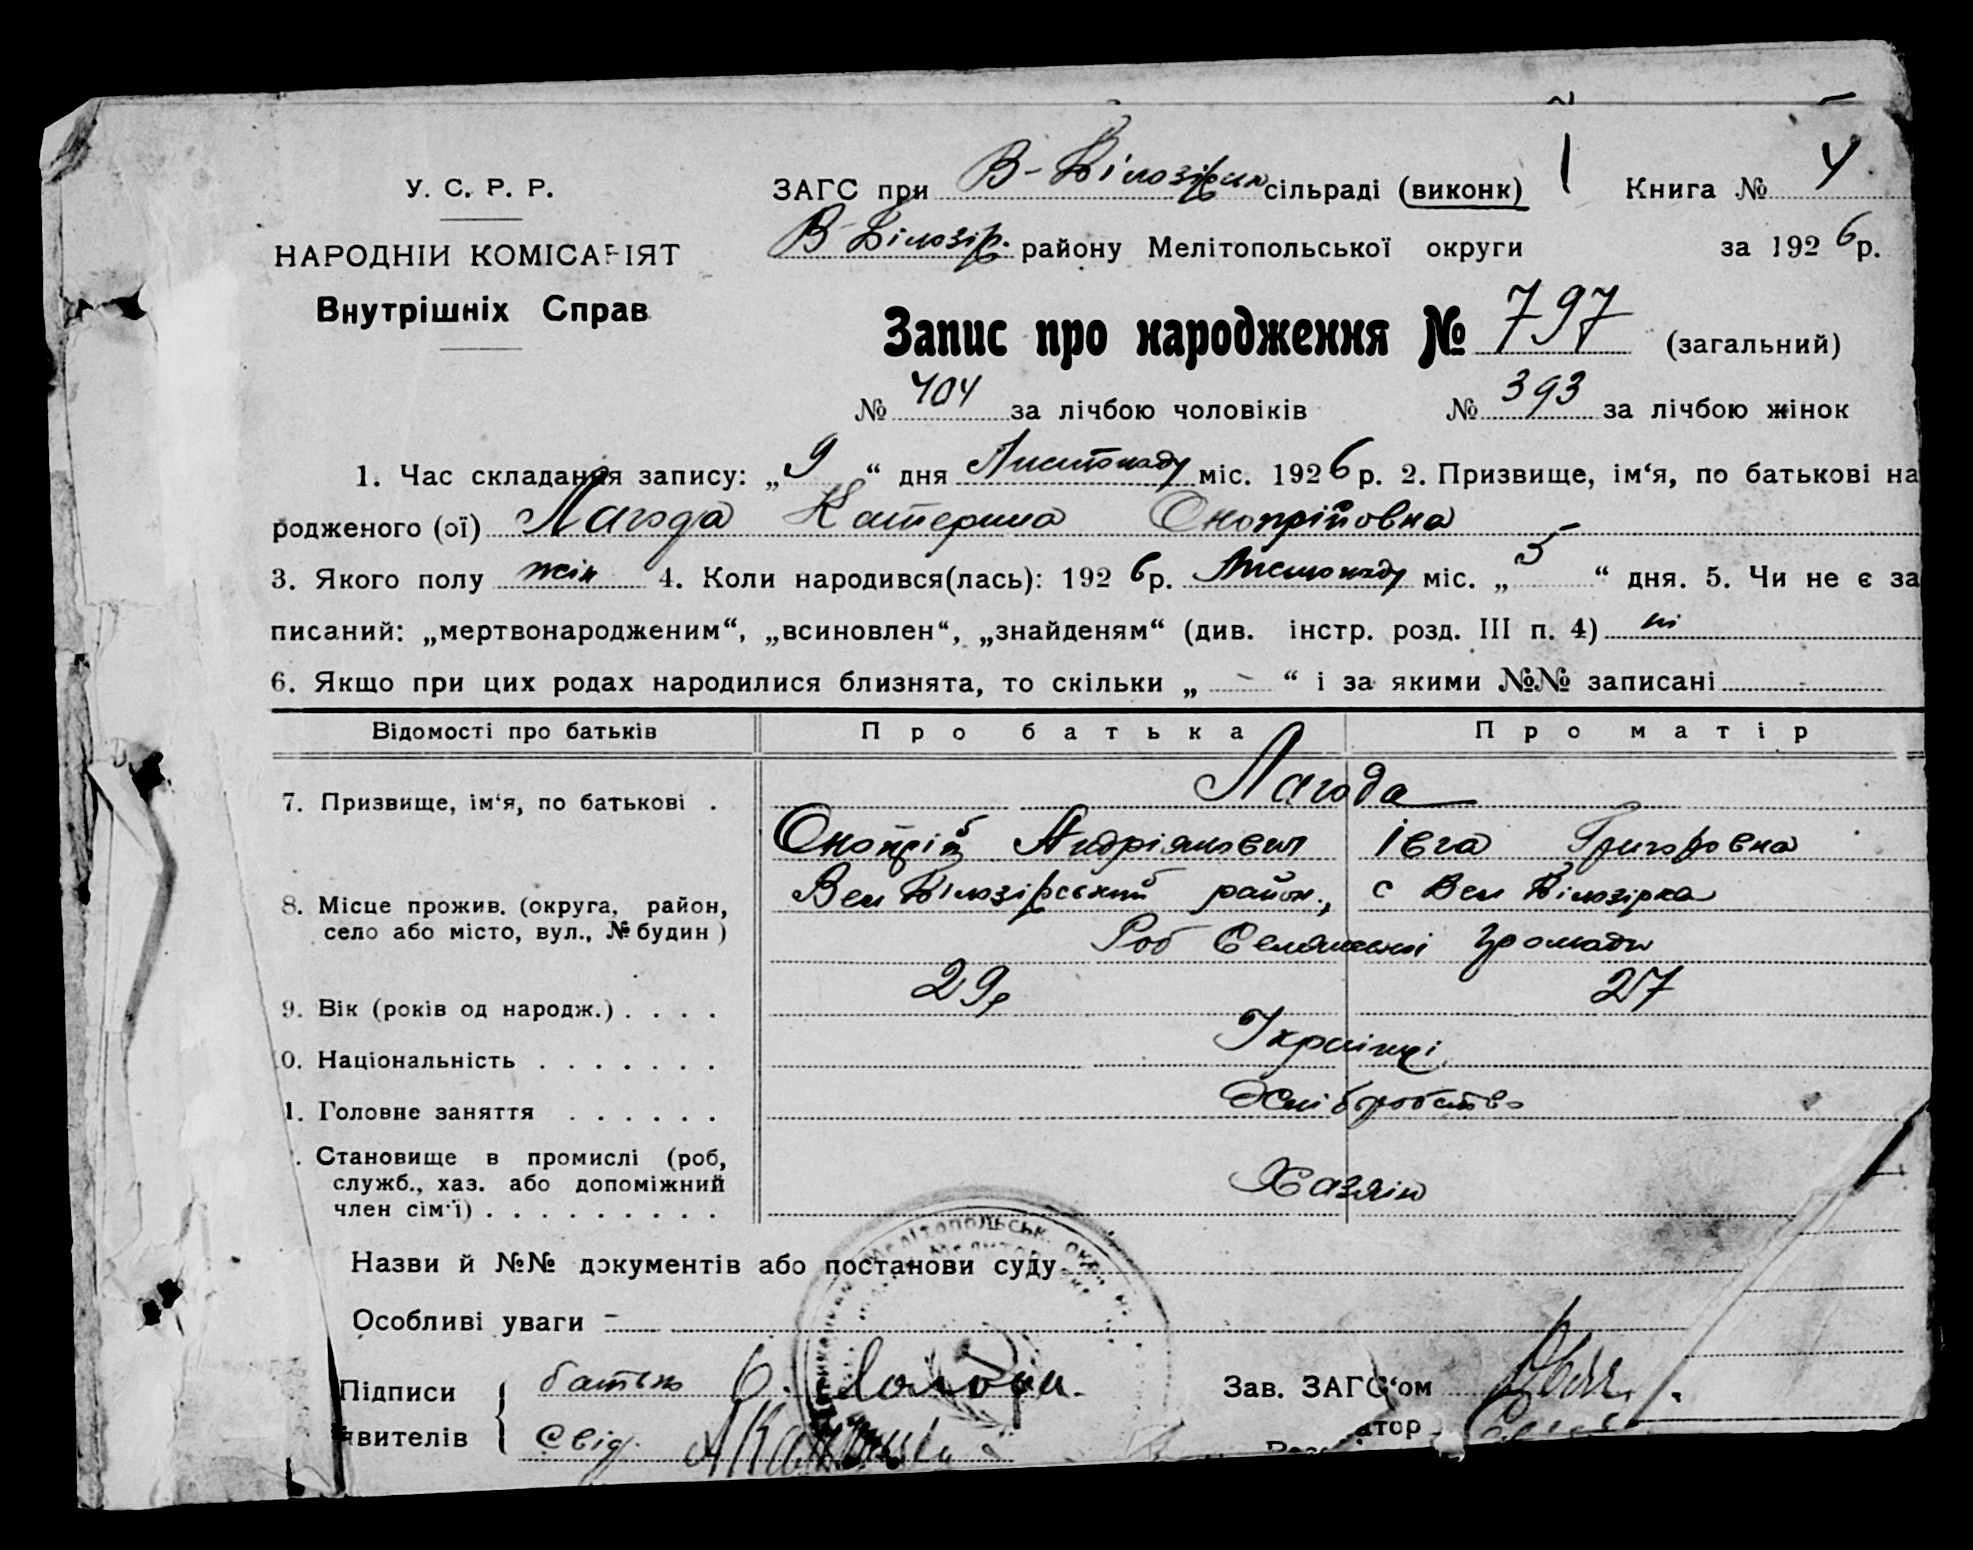 У. С. Р. Р.
НАРОДНІЙ КОМІСАРІЯТ
Внутрішніх Справ
ЗАГС при В-Білозірск сільраді (виконк) 1 Книга № 4
В-Білозір. району Мелітопольської округи за 1926 р.
Запис про народження № 797 (загальний)
№ 404 за лічбою чоловіків № 393 за лічбою жінок
1. Час складання запису: „9“ дня Листопаду міс. 1926 р. 2. Призвище, ім‘я, по батькові на
родженого (ої) Лагода Катерина Онопрійовна
3. Якого полу жін 4. Коли народився(лась): 1926 р. Листопаду міс. „5“ дня. 5. Чи не є за
писаний: „мертвонародженим“, „всиновлен“, „знайденям“ (див. інстр. розд. III п. 4) ні
6. Якщо при цих родах народилися близнята, то скільки „ - “ і за якими №№ записані -
Відомості про батьків Про батька Про матір
7. Призвище, ім‘я, по батькові . Лагода
Онопрій Андріянович Івга Григоровна
8. Місце прожив. (округа, район, Вел Білозірський район., с Вел Білозірка
село або місто, вул., № будин) Роб Селянської громади
9. Вік (років од народж.) . . . . 29р 27
0. Національність . . . . . . . Українці
1. Головне заняття . . . . . . Хліборобство
. Становище в промислі (роб,
служб., хаз. або допоміжний Хазяін
член сім‘ї) . . . . . . . . .
Назви й №№ документів або постанови суду
Особливі уваги -
Підписи батько О. Лагода. Зав. ЗАГС‘ом
явителів свід. атор